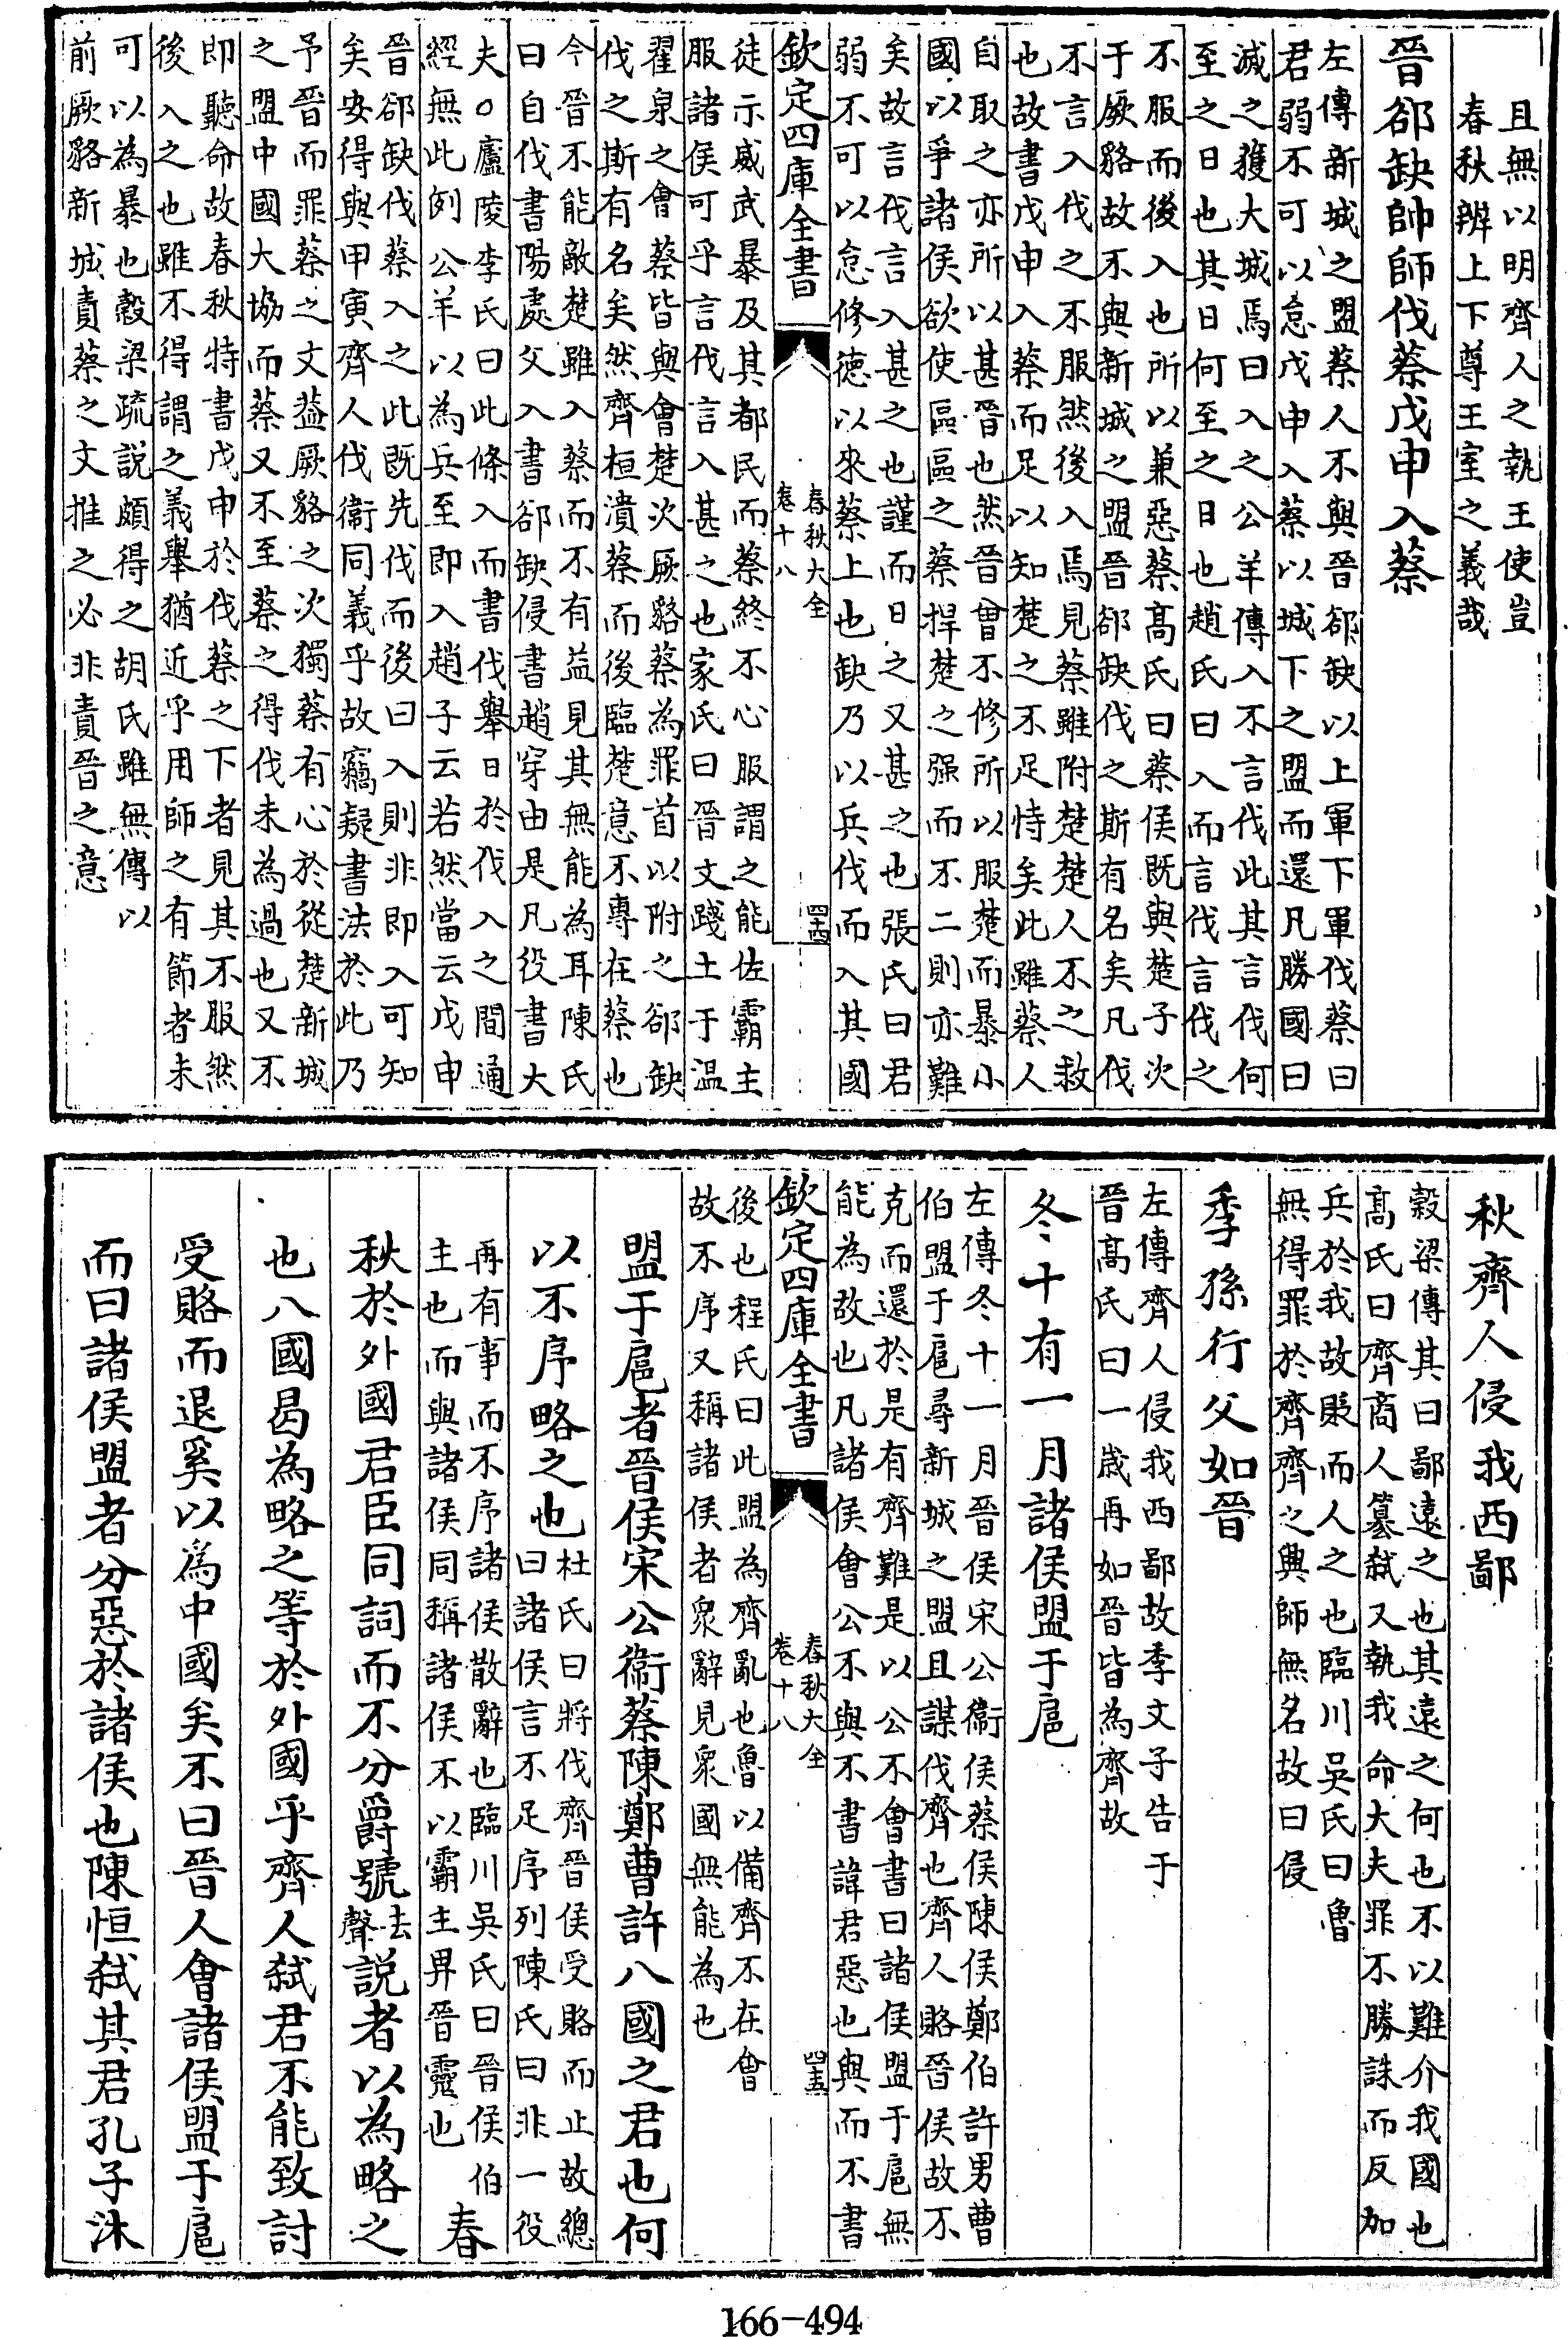 且無以明齊人之執王使豈
春秋辨上下尊王室之義哉
晉郤缺帥師伐蔡戊申入蔡
左傳新城之盟蔡人不與晉郤缺以上軍下軍伐蔡曰
君弱不可以怠戊申入蔡以城下之盟而還凡勝國曰
滅之獲大城焉曰入之公羊傳入不言伐此其言伐何
至之日也其日何至之日也趙氏曰入而言伐言伐之
不服而後入也所以兼惡蔡髙氏曰蔡侯既與楚子次
于厥貉故不與新城之盟晉郤缺伐之斯有名矣凡伐
不言入伐之不服然後入焉見蔡雖附楚楚人不之救
也故書戊申入蔡而足以知楚之不足恃矣此雖蔡人
自取之亦所以甚晉也然晉曾不修所以服楚而暴小
國以爭諸侯欲使區區之蔡捍楚之强而不二則亦難
矣故言伐言入甚之也謹而日之又甚之也張氏曰君
弱不可以怠修徳以來蔡上也缺乃以兵伐而入其國
欽定四庫全書
春秋大全
卷十八
四十四
徒示威武暴及其都民而蔡終不心服謂之能佐霸主
服諸侯可乎言伐言入甚之也家氏曰晉文踐土于温
翟泉之會蔡皆與會楚次厥貉蔡為罪首以附之郤缺
伐之斯有名矣然齊桓潰蔡而後臨楚意不專在蔡也
今晉不能敵楚雖入蔡而不有益見其無能為耳陳氏
曰自伐書陽處父入書郤缺侵書趙穿由是凡役書大
夫○廬陵李氏曰此條入而書伐舉日於伐入之間通
經無此例公羊以為兵至即入趙子云若然當云戊申
晉郤缺伐蔡入之此既先伐而後曰入則非即入可知
矣安得與甲寅齊人伐衛同義乎故竊疑書法於此乃
予晉而罪蔡之文葢厥貉之次獨蔡有心於從楚新城
之盟中國大協而蔡又不至蔡之得伐未為過也又不
即聽命故春秋特書戊申於伐蔡之下者見其不服然
後入之也雖不得謂之義舉猶近乎用師之有節者未
可以為暴也榖梁疏說頗得之胡氏雖無傳以
前厥貉新城責蔡之文推之必非責晉之意
秋齊人侵我西鄙
榖梁傳其曰鄙逺之也其逺之何也不以難介我國也
髙氏曰齊商人簒弑又執我命大夫罪不勝誅而反加
兵於我故貶而人之也臨川吳氏曰魯
無得罪於齊齊之興師無名故曰侵
季孫行父如晉
左傳齊人侵我西鄙故季文子告于
晉髙氏曰一歲再如晉皆為齊故
冬十有一月諸侯盟于扈
左傳冬十一月晉侯宋公衞侯蔡侯陳侯鄭伯許男曹
伯盟于扈尋新城之盟且謀伐齊也齊人賂晉侯故不
克而還於是有齊難是以公不會書曰諸侯盟于扈無
能為故也凡諸侯會公不與不書諱君惡也與而不書
欽定四庫全書
春秋大全
卷十八
四十五
後也程氏曰此盟為齊亂也魯以備齊不在會
故不序又稱諸侯者衆辭見衆國無能為也
盟于扈者晉侯宋公衞蔡陳鄭曹許八國之君也何
以不序略之也
杜氏曰將伐齊晉侯受賂而止故總
曰諸侯言不足序列陳氏曰非一役
再有事而不序諸侯散辭也臨川吳氏曰晉侯伯
主也而與諸侯同稱諸侯不以霸主畀晉靈也
春
秋於外國君臣同詞而不分爵號
去
聲
說者以為略之
也八國曷為略之等於外國乎齊人弑君不能致討
受賂而退奚以為中國矣不曰晉人會諸侯盟于扈
而曰諸侯盟者分惡於諸侯也陳恒弑其君孔子沐
166-494